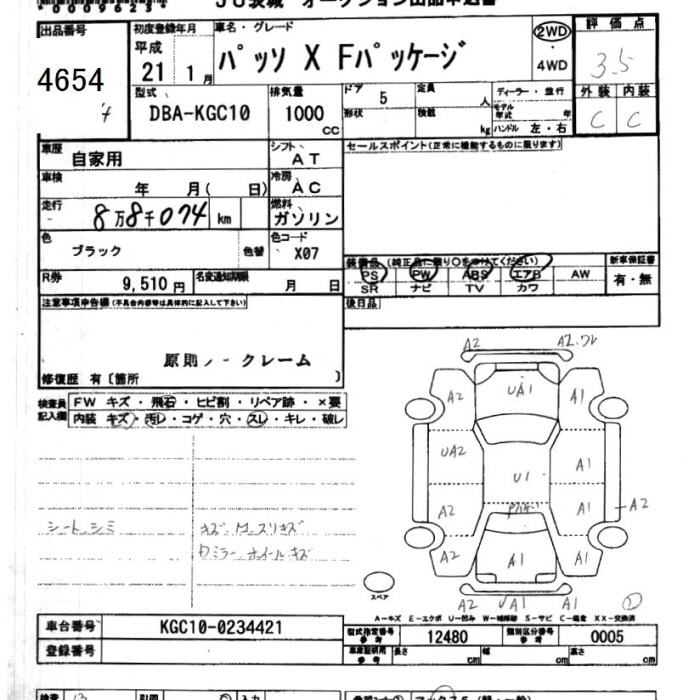 出品番号
4654
初度登録年月
平成
21 1月
車名・グレード
パッソ X Fパッケージ
2WD
・
4WD
評価点
3.5
外装 内装
C C
型式
DBA-KGC10
排気量
1000
cc
ドア 5
形状
定員 人
積載 kg
ディーラー・並行
モデル年式 年
ハンドル 左・右
車歴
自家用
シフト
AT
セールスポイント(正常に機能するものに限ります)
車検
年 月( 日)
冷房
AC
走行
8万8千074 km
燃料
ガソリン
色
ブラック
色替
色コード
X07
装備品(純正品に限り○をつけてください)
新車保証書
PS PW ABS エアB AW
SR ナビ TV カワ
有・無
R券
9,510円
名変通知期限
月 日
後日品
注意事項申告欄(不具合内容等は具体的に記入して下さい)
原則ノークレーム
修復歴 有〔箇所 〕
検査員記入欄
FW キズ・飛石・ヒビ割・リペア跡・×要
内装 キズ・汚レ・コゲ・穴・スレ・キレ・破レ
シート シミ
A2
A2.ワレ
A2
UA1
A1
UA2
U1
A1
A2
A1
A2
A2
A1
A1
A2
A1
A2
スペア
A-キズ E-エクボ U-凹み W-補修跡 S-サビ C-腐食 XX-交換済
車台番号
KGC10-0234421
登録番号
型式指定番号
参考
12480
類別区分番号
参考
0005
車庫証明用
参考
長さ cm
幅 cm
高さ cm